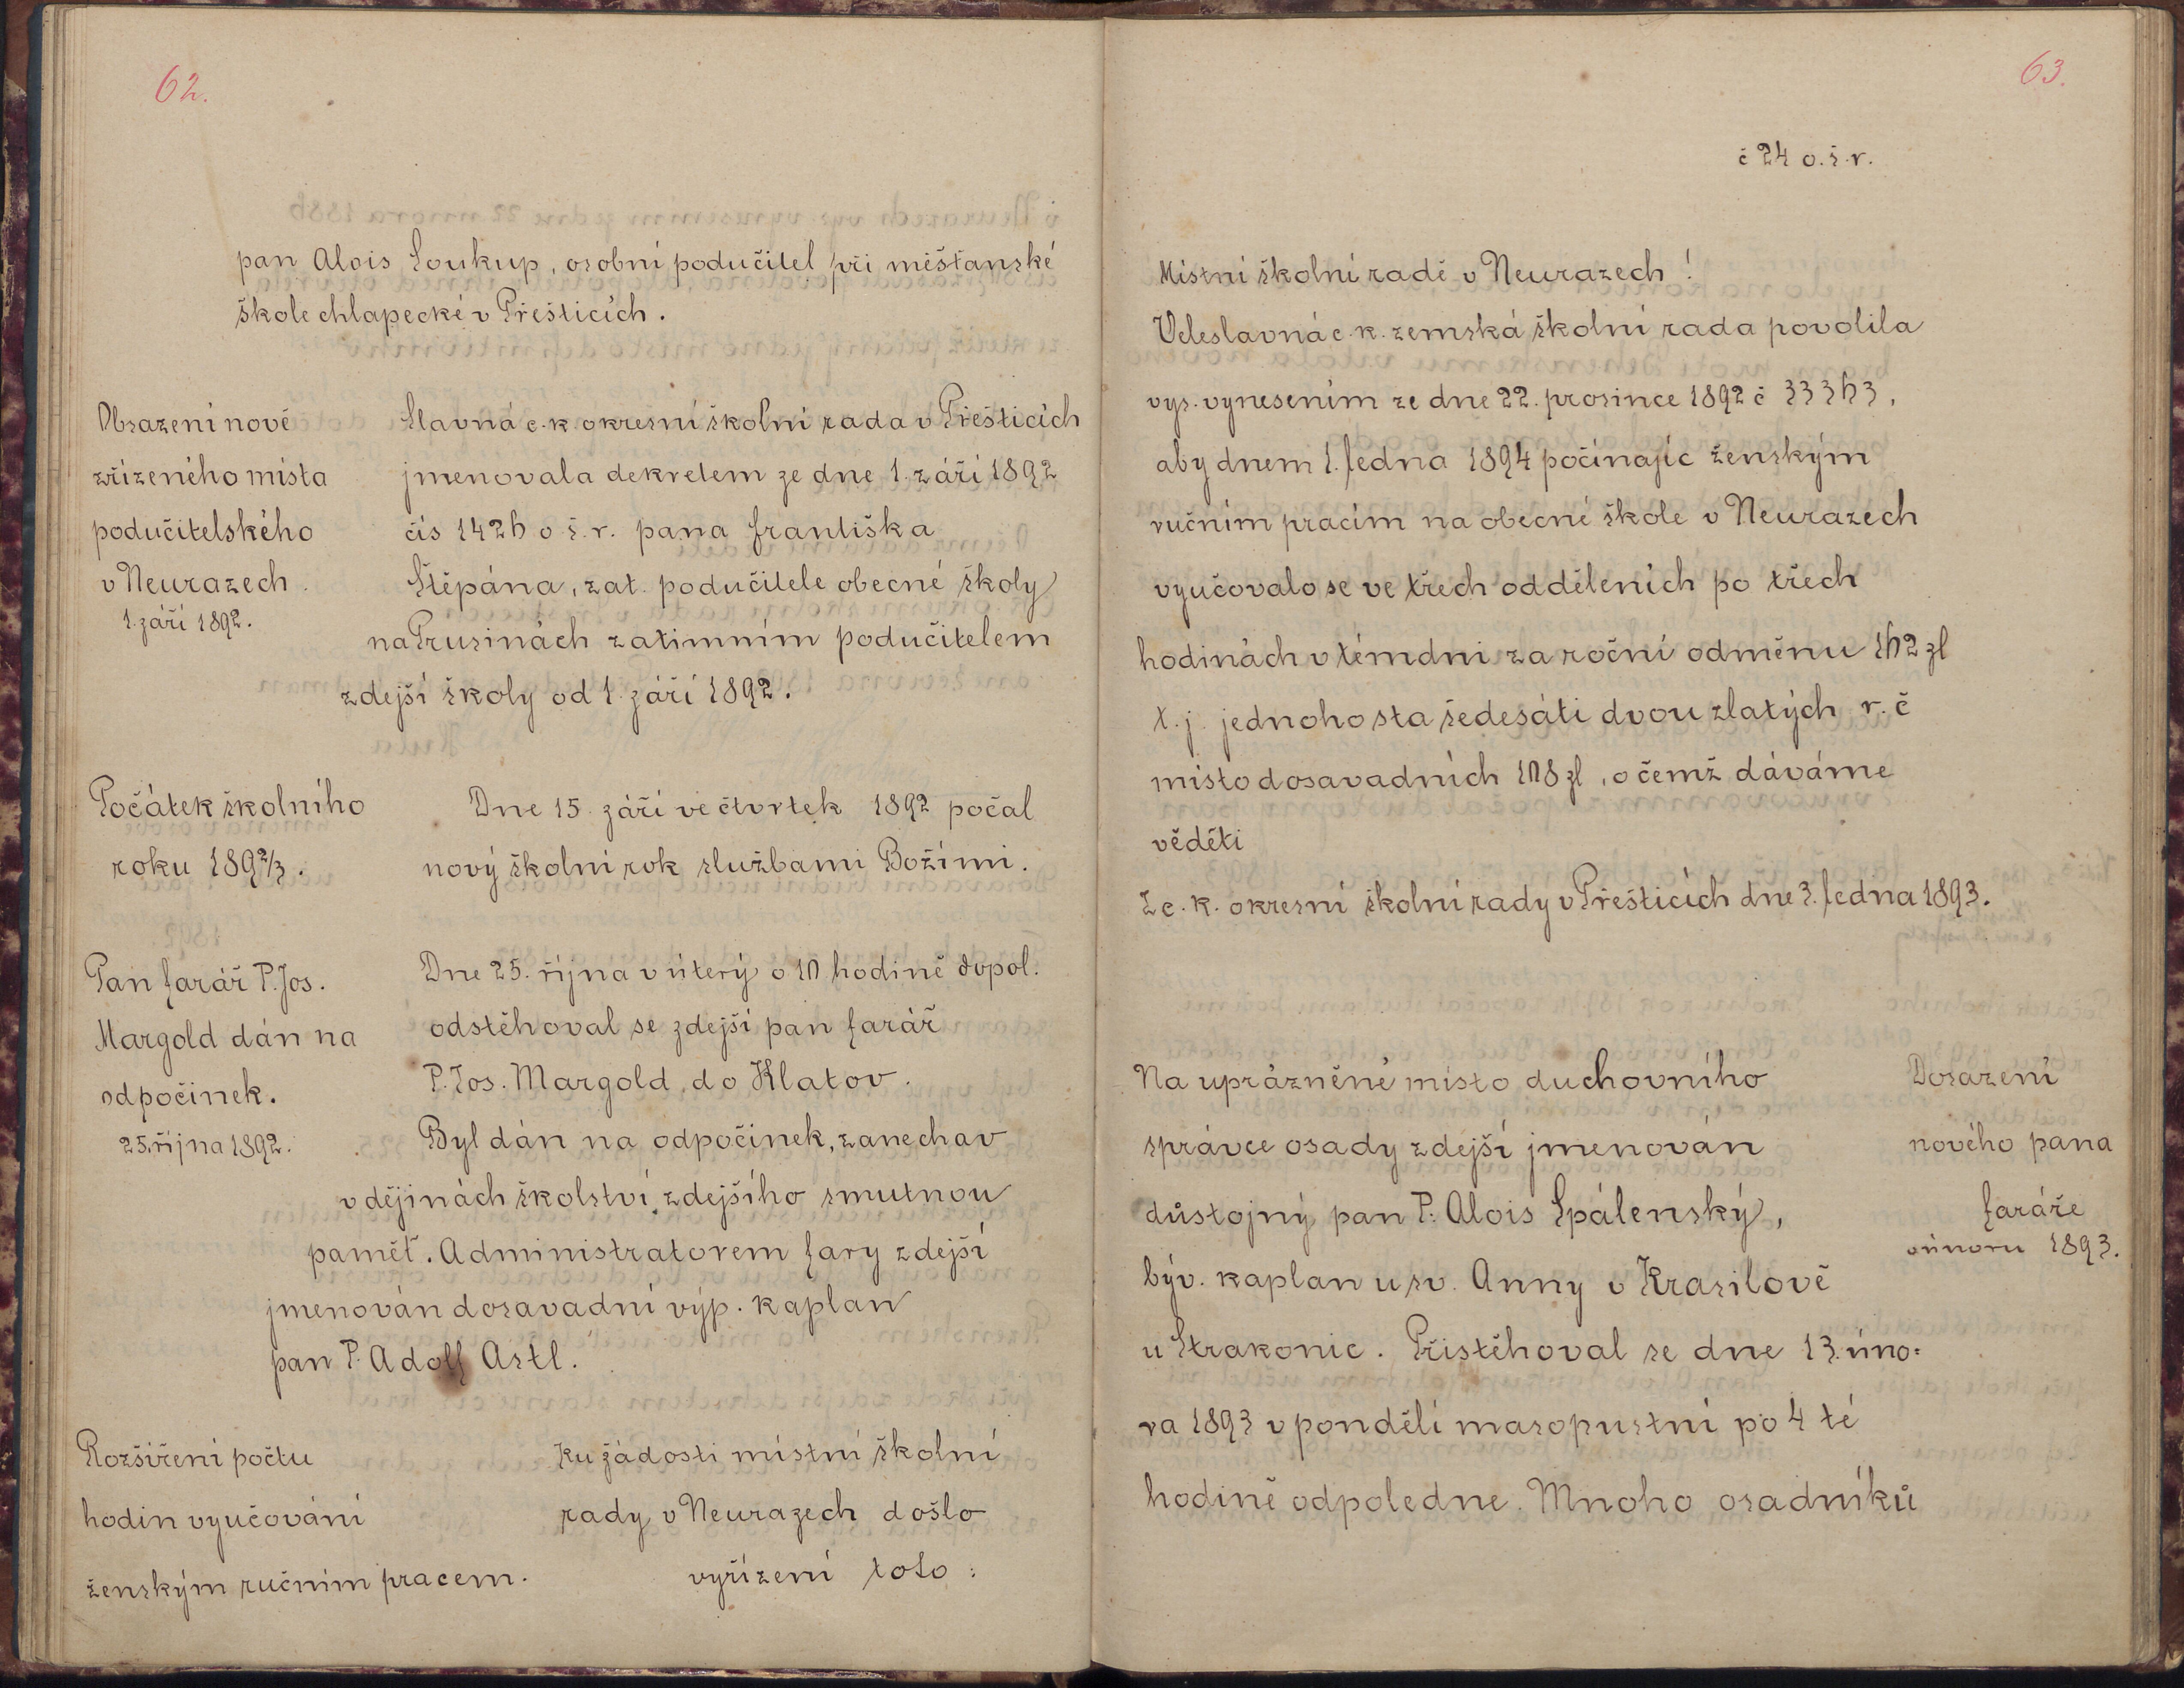 62.
pan Alois Soukup, osobní podučitel při měšťanské
škole chlapecké v Přešticích.
Obsazení nově
zřízeného místa
podučitelského
v Neurazech.
1. září 1892.
Slavná c. k. okresní školní rada v Přešticích
jmenovala dekretem ze dne 1. září 1892
čís 1426 o. š. r. pana Františka
Štěpána, zat. podučitele obecné školy
na Prusinách zatimním podučitelem
zdejší školy od 1. září 1892.
Počátek školního
roku 1892/3.
Dne 15. září ve čtvrtek 1892 počal
nový školní rok službami Božími.
Pan farář P. Jos.
Margold dán na
odpočinek.
25. října 1892.
Dne 25. října v úterý o 10 hodině dopol.
odstěhoval se zdejší pan farář
P. Jos. Margold do Klatov.
Byl dán na odpočinek, zanechav
v dějinách školství zdejšího smutnou
paměť. Administratorem fary zdejší
jmenován dosavadní výp. kaplan
pan P. Adolf Astl.
Rozšíření počtu
hodin vyučování
ženským ručním pracem.
Ku žádosti místní školní
rady v Neurazech došlo
vyřízení toto:
63.
č 24 o. š. r.
Místní školní radě v Neurazech!
Veleslavná c. k. zemská školní rada povolila
vys. vynesením ze dne 22. prosince 1892 č 33363,
aby dnem 1. ledna 1894 počínajíc ženským
ručním pracím na obecné škole v Neurazech
vyučovalo se ve třech odděleních po třech
hodinách v témdni za roční odměnu 162 zl
t. j. jednoho sta šedesáti dvou zlatých r. č
místo dosavadních 108 zl, o čemž dáváme
věděti
Z c. k. okresní školní rady v Přešticích dne 3. ledna 1893.
Na uprázněné místo duchovního
správce osady zdejší jmenován
důstojný pan P. Alois Spálenský,
býv. kaplan u sv. Anny v Krasilově
u Strakonic. Přistěhoval se dne 13. úno-
ra 1893 v pondělí masopustní po 4 té
hodině odpoledne. Mnoho osadníků
Dosazení
nového pana
faráře
v únoru 1893.